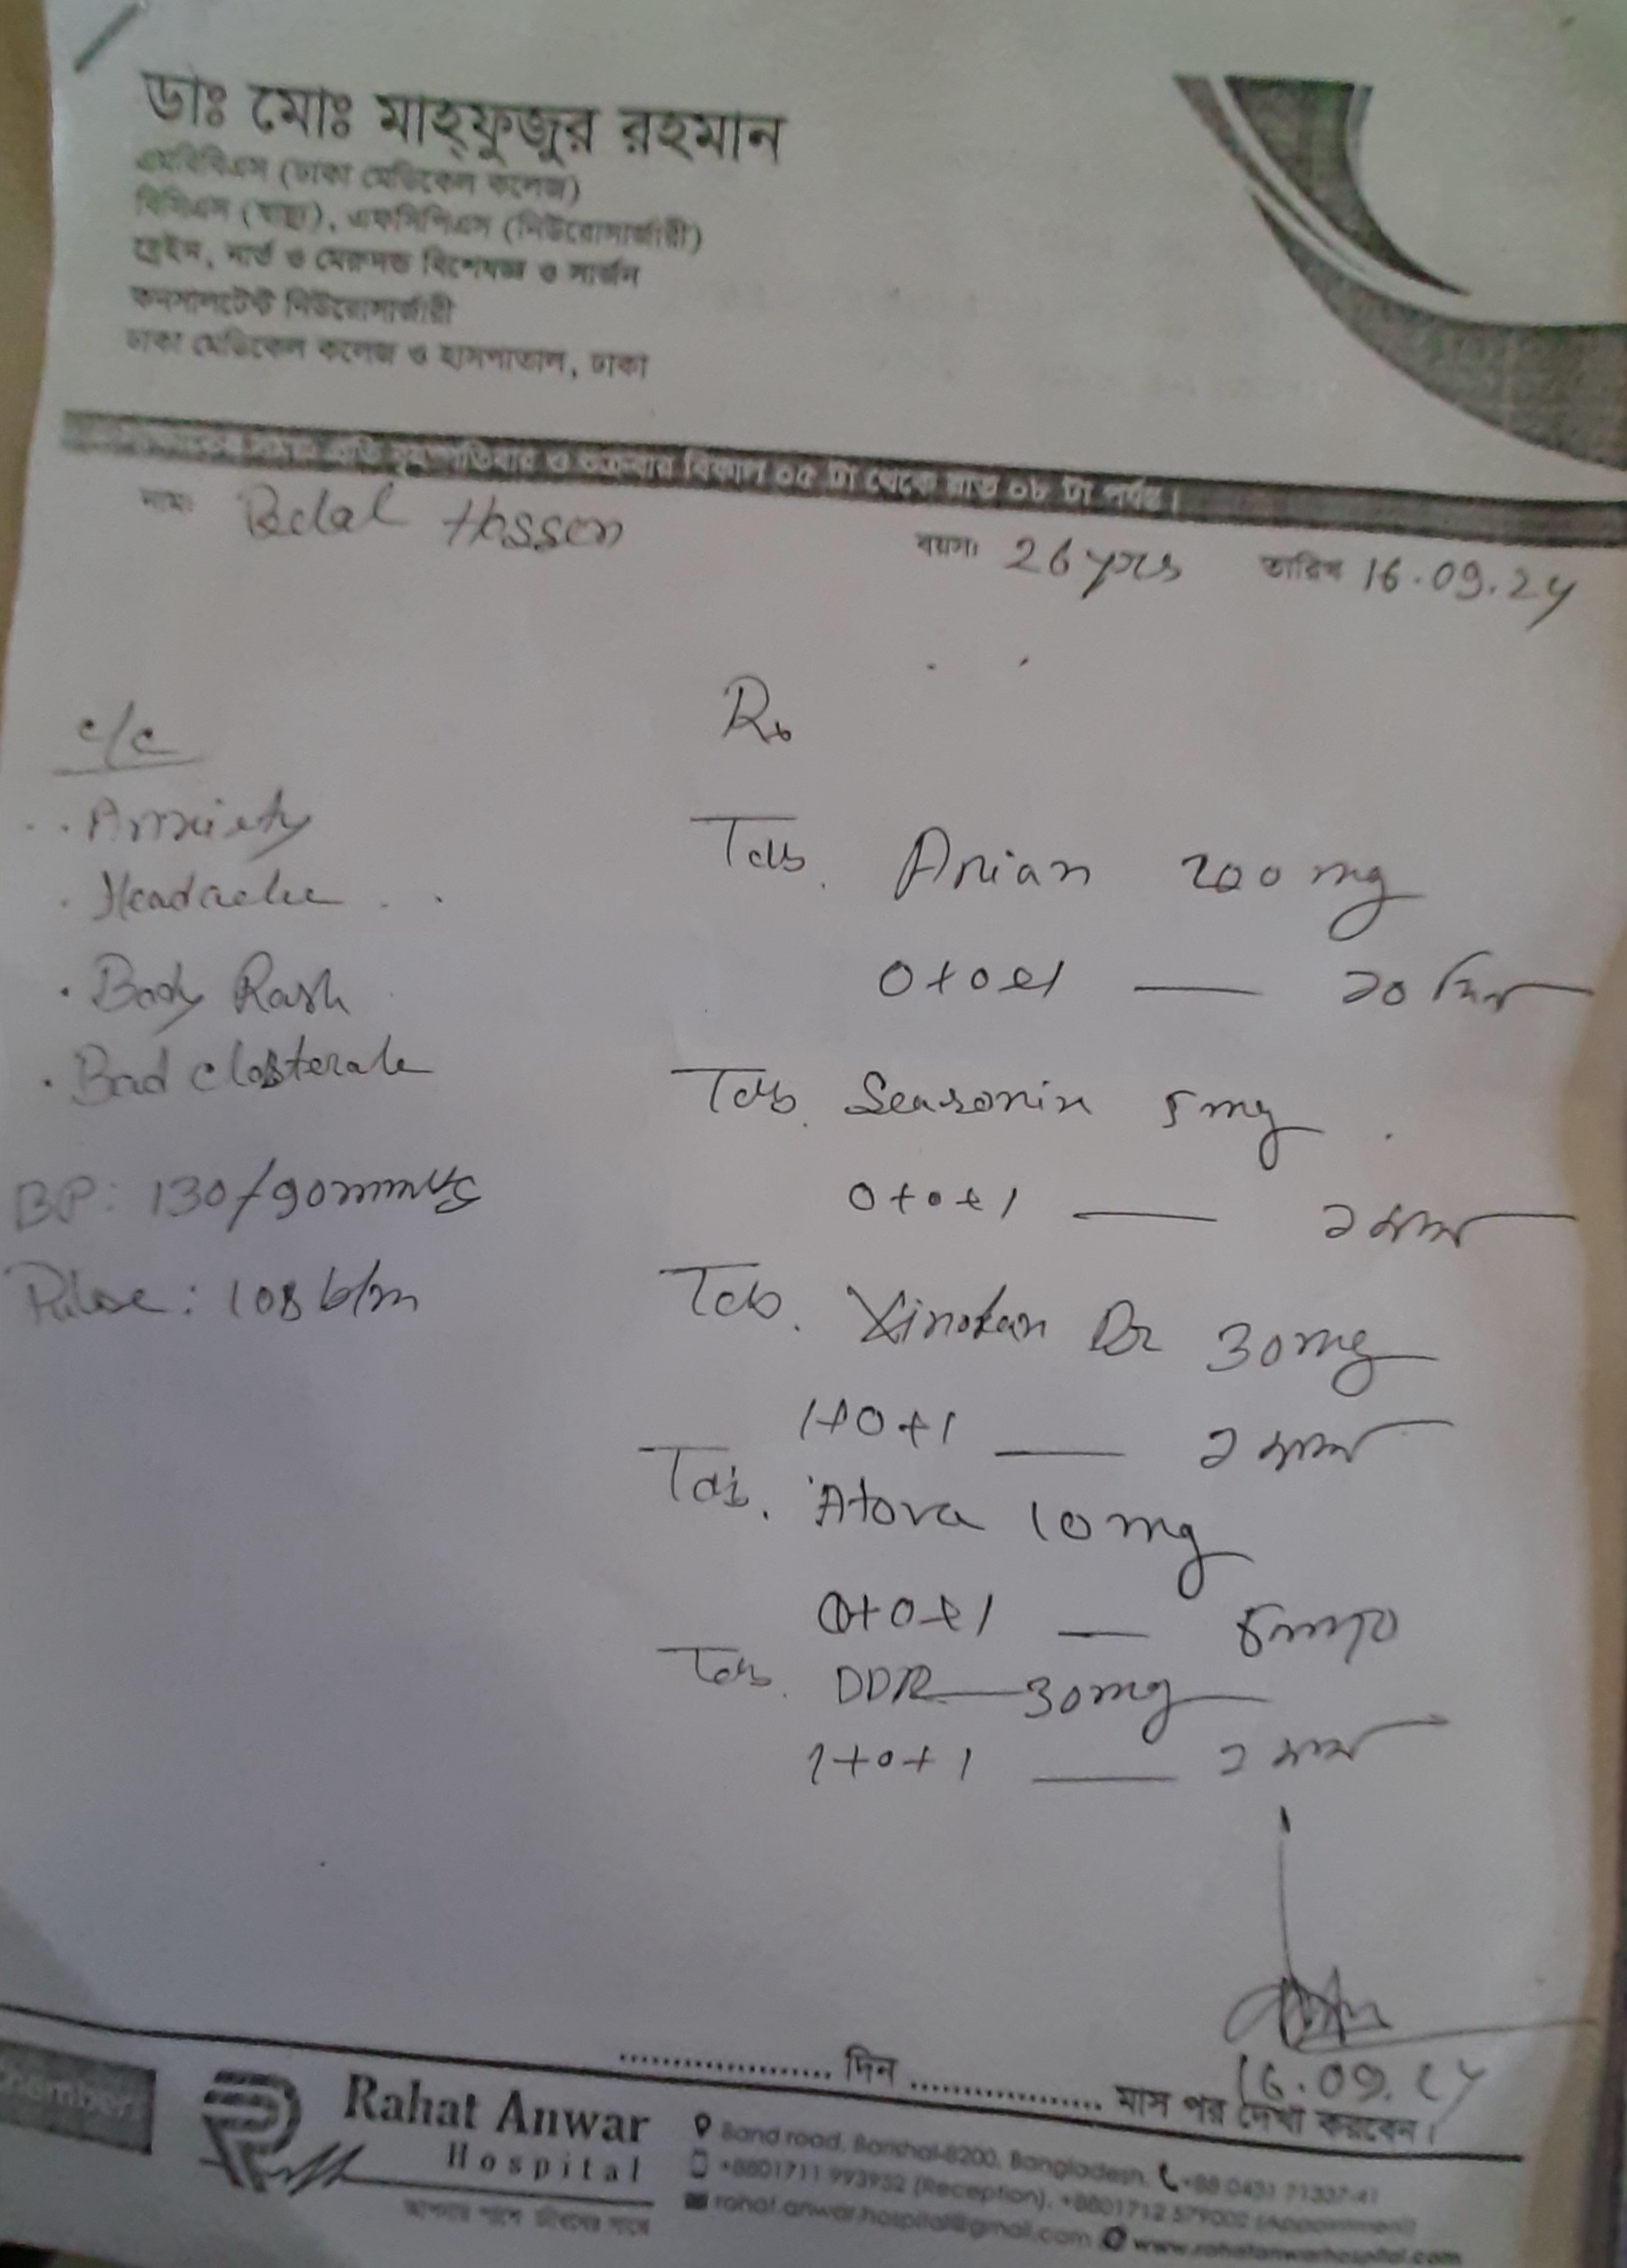 ডাঃ মোঃ মাহ্ফুজুর রহমান
এমবিবিএস (ঢাকা মেডিকেল কলেজ)
বিসিএস (স্বাস্থ্য), এফসিপিএস (নিউরোসার্জারী)
ব্রেইন, নার্ভ ও মেরুদন্ড বিশেষজ্ঞ ও সার্জন
কনসালটেন্ট নিউরোসার্জারী
ঢাকা মেডিকেল কলেজ ও হাসপাতাল, ঢাকা
প্রতি বৃহস্পতিবার ও শুক্রবার বিকাল ০৫ টা থেকে রাত ০৮ টা পর্যন্ত।
নামঃ Belal Hossen বয়সঃ 26 yrs তারিখ 16.09.24
c/c
Rx
. Anxiety
. Headache
. Body Rash
. Bad closterale
BP: 130/90mmHg
Pulse: 108 b/m
Tab. Arian 200 mg
0+0+1 — ২০ দিন
Tab. Seasonix 5 mg
0+0+1 — ২ মাস
Tab. Dr 30mg
1+0+1 — ২ মাস
Tab. Atova 10 mg
0+0+1 —
Tab. DDR 30mg
1+0+1 — ২ মাস
16.09.24
.................... দিন .................... মাস পর দেখা করবেন।
Rahat Anwar
Hospital
আপনার পাশে জীবনের সাথে
Band road, Barishal-8200, Bangladesh. +88 0431 71337-41
+8801711 993952 (Reception), +8801712 579002 (Appointment)
rahat.anwar.hospital@gmail.com www.rahatanwarhospital.com